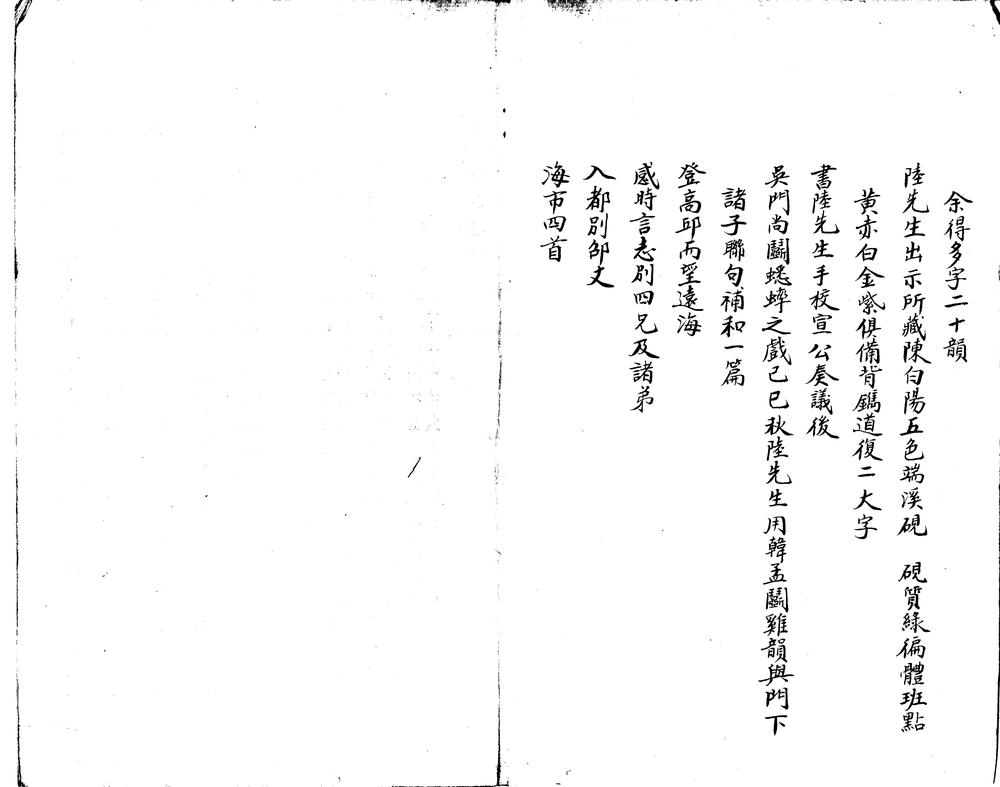 余得多字二十韻
陸先生出示所藏陳白陽五色端溪硯　硯質綠徧體班點
黃赤白金紫俱備背鐫道復二大字
書陸先生手校宣公奏議後
吳門尚鬭蟋蟀之戲己巳秋陸先生用韓孟鬭雞韻與門下
諸子聯句補和一篇
登高邱而望遠海
感時言志別四兄及諸弟
入都別邵丈
海市四首